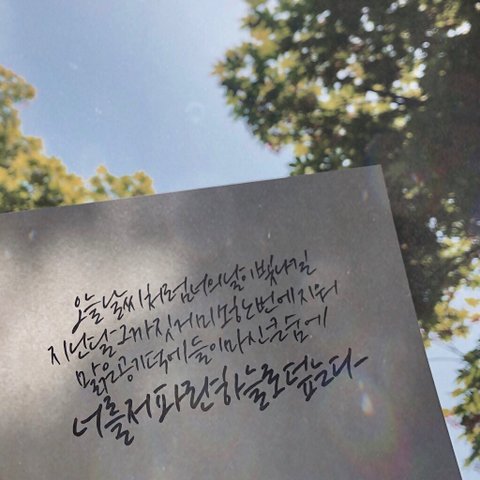 오늘 날씨처럼 너의 날이 빛나길
지난달 그까짓 거 미모 한번에 지워
맑은 공기 덕에 들이마신 큰 숨에
너를 저 파란 하늘로 덮는다